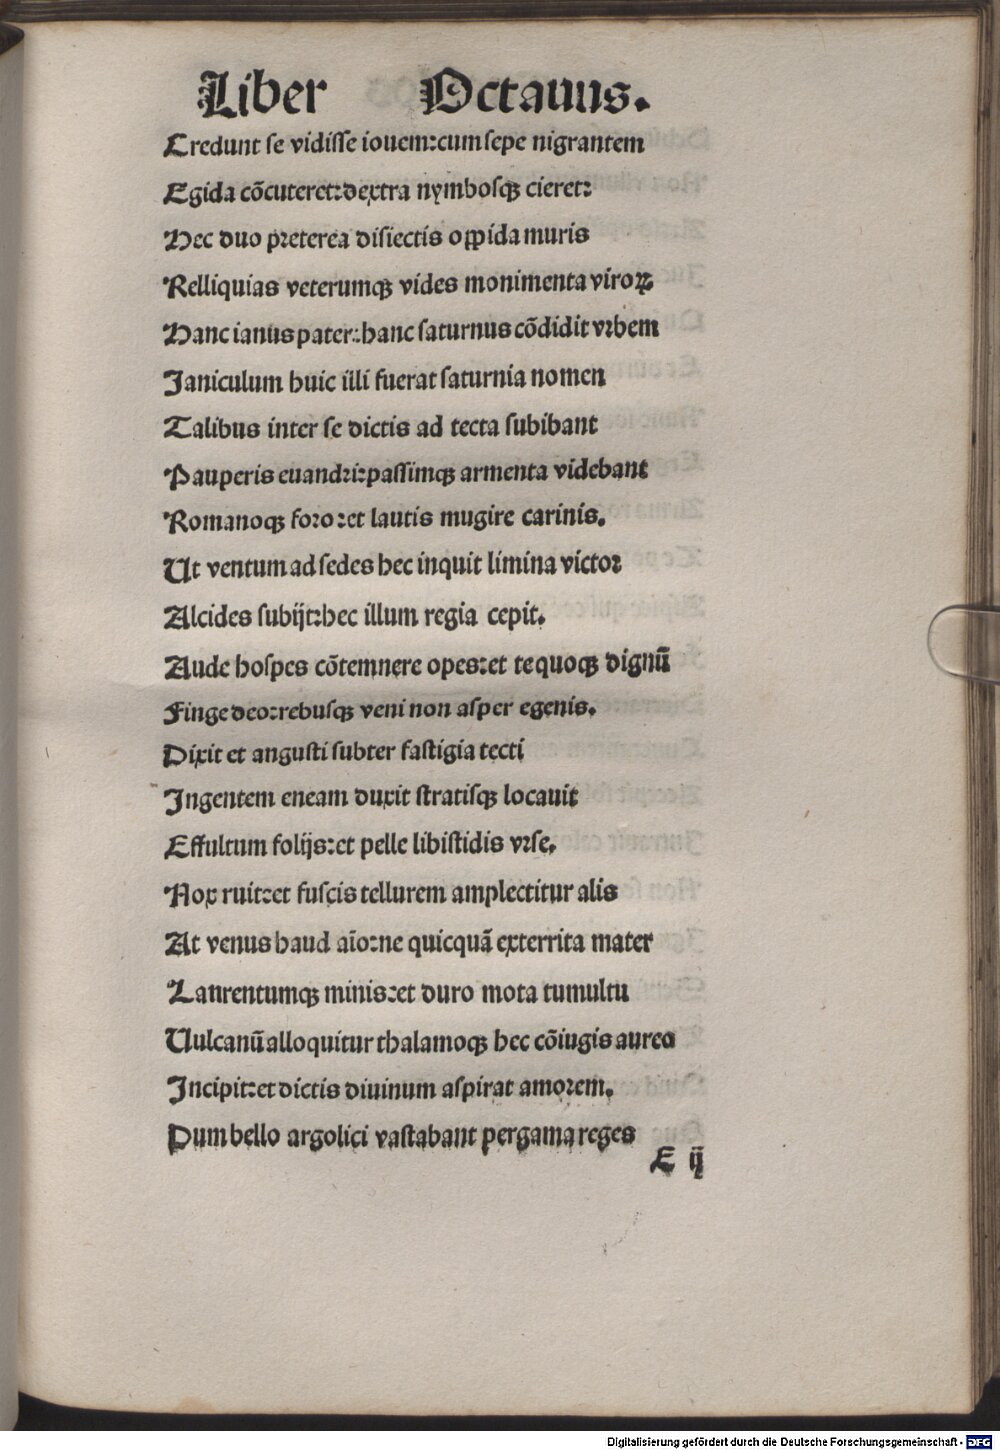 Liber Octauus.
Credunt se vidisse iouem:cum sepe nigrantem
Egida cōcuteret:dextra nymbosqꝫ cieret:
Hec duo preterea disiectis oꝑpida muris
Relliquias veterumqꝫ vides monimenta viroꝝ.
Hanc ianus pater:hanc saturnus cōdidit vrbem
Janiculum huic illi fuerat saturnia nomen
Talibus inter se dictis ad tecta subibant
Pauperis euandri:passimqꝫ armenta videbant
Romanoqꝫ foro:et lautis mugire carinis.
Ut ventum ad sedes hec inquit limina victor
Alcides subijt:hec illum regia cepit.
Aude hospes cōtemnere opes:et te quoqꝫ dignū
Finge deo:rebusqꝫ veni non asper egenis.
Dixit et angusti subter fastigia tecti
Ingentem eneam duxit stratisqꝫ locauit
Effultum folijs:et pelle libistidis vrse.
Nox ruit:et fuscis tellurem amplectitur alis
At venus haud aīo:ne quicquā exterrita mater
Laurentumqꝫ minis:et duro mota tumultu
Uulcanū alloquitur thalamoqꝫ hec cōiugis aureo
Incipit:et dictis diuinum aspirat amorem.
Dum bello argolici vastabant pergama reges
E ij
Digitalisierung gefördert durch die Deutsche Forschungsgemeinschaft - DFG